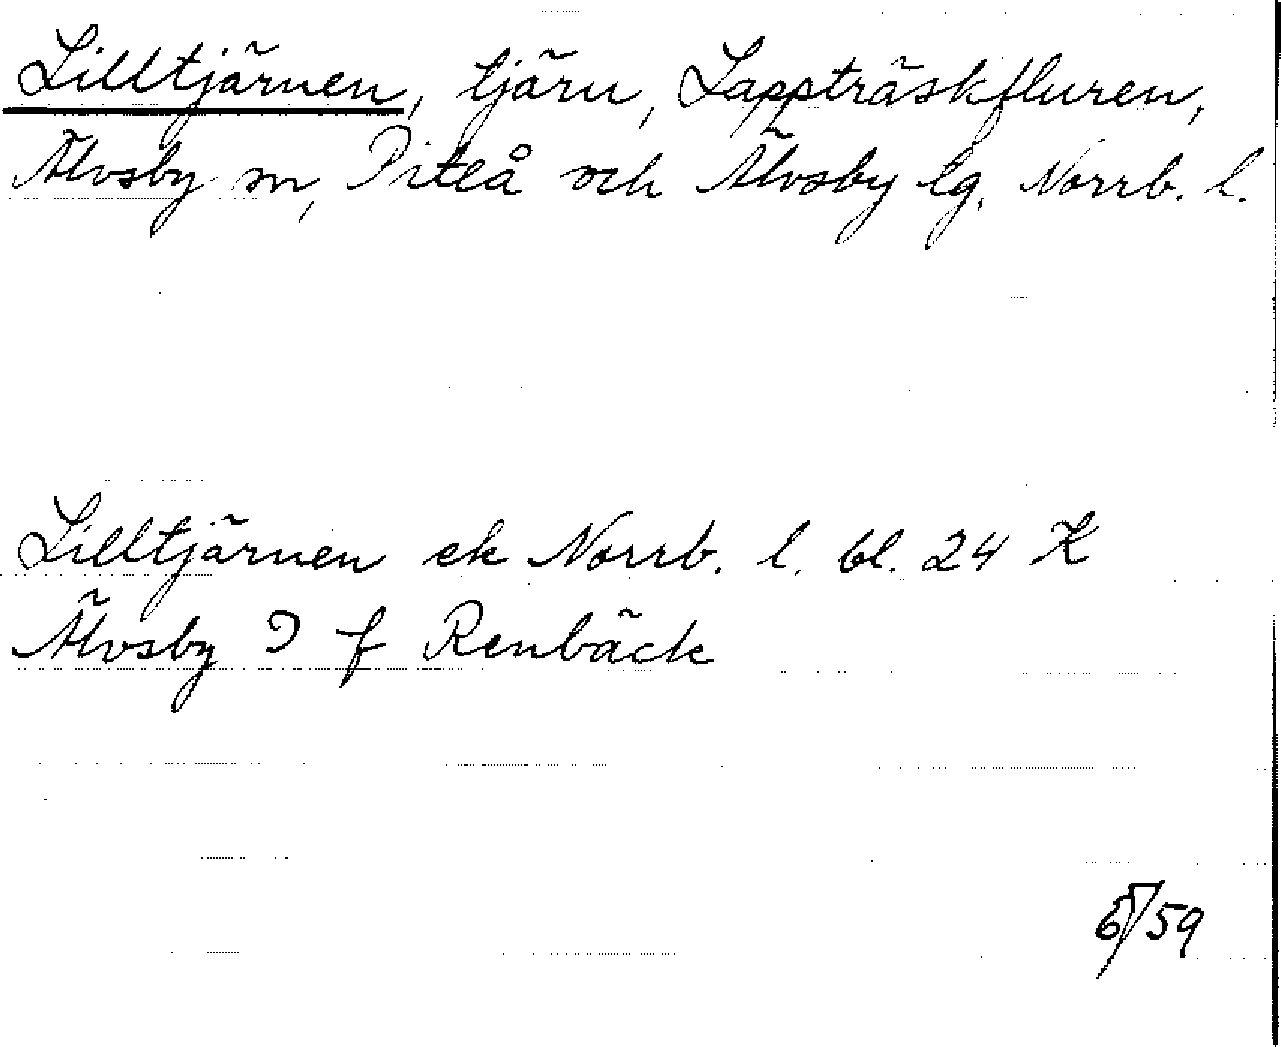 Lilltjärnen, tjärn, Lappträskfluren,
Älvsby sn, Piteå och Älvsby tg, Norrb. l.
Lilltjärnen ek Norrb. l. bl. 24 K
Älvsby I f Renbäck
/59